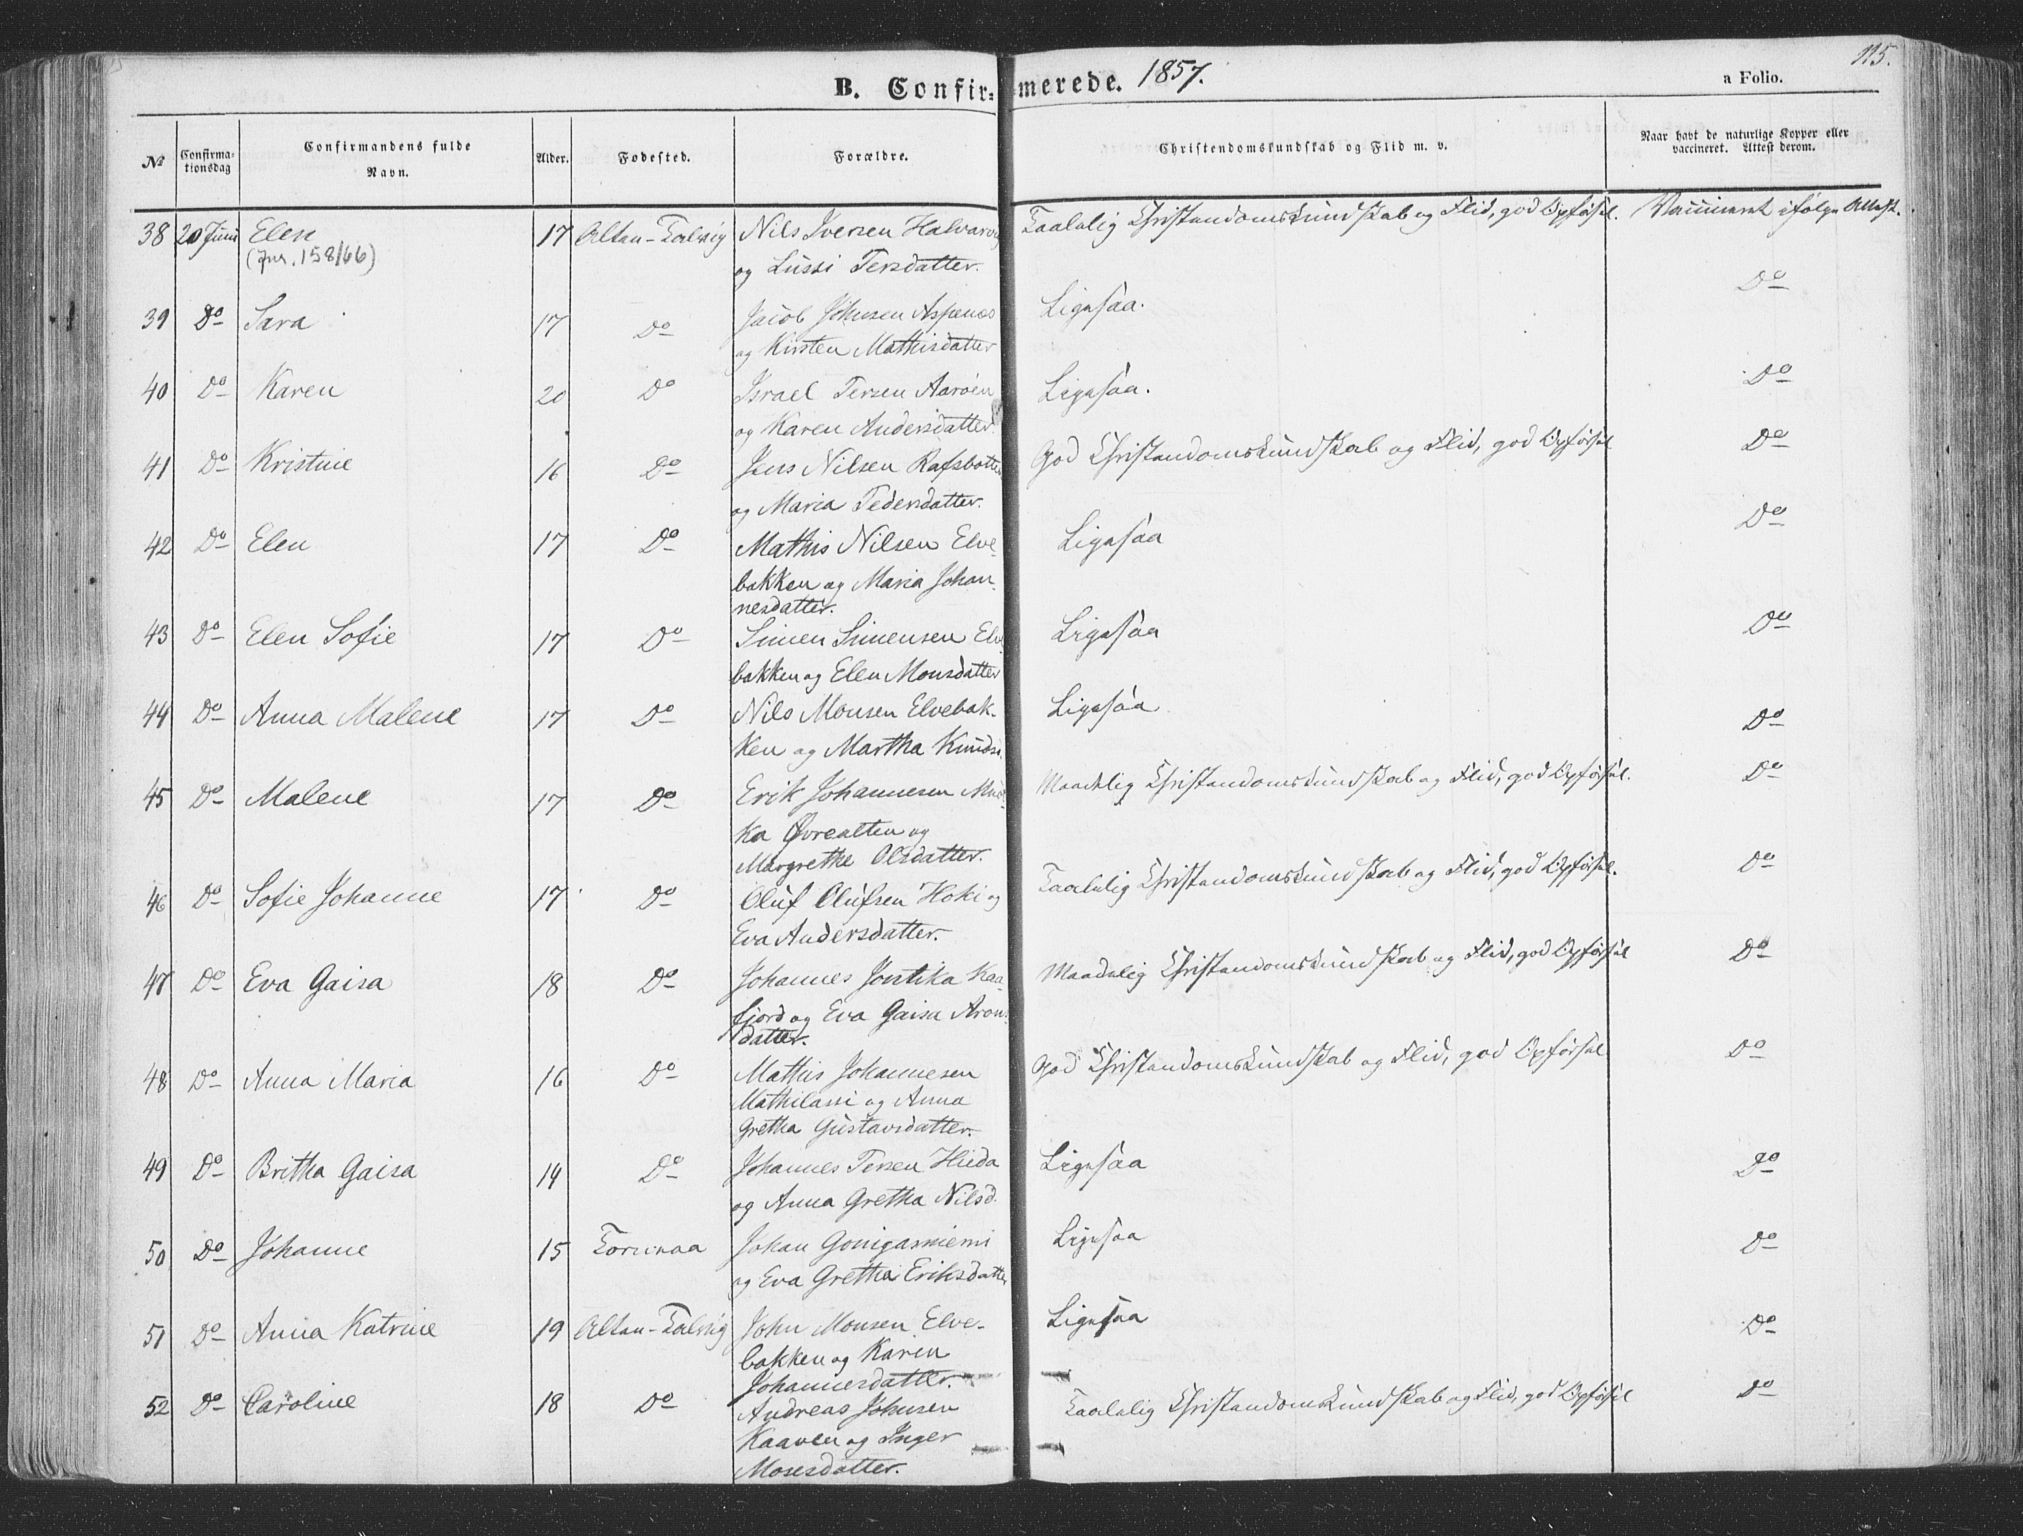 115.
B. Confir=merede. 1857.
a Folio.
No
Confirma-
tionsdag
Confirmandens fulde
Navn.
Alder.
Fødested.
Forældre.
Christendomskundskab og Flid m. v.
Naar havt de naturlige Kopper eller
vaccineret. Attest derom.
38 20 Juni Elen 17 Alten-Talvig Nils Iversen Halvarvig Taalelig Christendomskundskab og Flid, god Opførsel. Vaccineret ifølge Attest.
(Jnr. 158/66)
og Lussi Persdatter.
39 Do Sara 17 Do Jacob Johnsen Aspenæs Ligesaa. Do
og Kirsten Mathisdatter
40 Do Karen 20 Do Israel Persen Aarøen Ligesaa. Do
og Karen Andersdatter.
41 Do Kristine 16 Do Jens Nilsen Rafsbotten God Christendomskundskab og Flid, god Opførsel Do
og Maria Pedersdatter.
42 Do Elen 17 Do Mathis Nilsen Elve- Ligesaa Do
bakken og Maria Johan-
nesdatter.
43 Do Elen Sofie 17 Do Simen Simensen Elve Ligesaa Do
bakken og Elen Monsdatter
44 Do Anna Malene 17 Do Nils Monsen Elvebak- Ligesaa Do
ken og Martha Knudsd.
45 Do Malene 17 Do Erik Johannesen Maadelig Christendomskundskab og Flid, god Opførsel. Do
ka Øvrealten og
Margrethe Olsdatter.
46 Do Sofie Johanne 17 Do Oluf Olufsen Hoki og Taalelig Christendomskundskab og Flid, god Opførsel. Do
Eva Andersdatter.
47 Do Eva Gaisa 18 Do Johannes Jontika Kaa- Maadelig Christendomskundskab og Flid, god Opførsel Do
fjord og Eva Gaisa Arons
datter.
48 Do Anna Maria 16 Do Mathis Johannesen God Christendomskundskab og Flid, god Opførsel Do
Mathilassi og Anna
Gretha Gustavsdatter.
49 Do Britha Gaisa 14 Do Johannes Persen Hieda Ligesaa Do
og Anna Gretha Nilsd.
50 Do Johanne 15 Johan Ligesaa Do
og Eva Gretha Eriksdatter
51 Do Anna Katrine 19 Alten-Talvig John Monsen Elve- Ligesaa Do
bakken og Karen
Johannesdatter.
52 Do Caroline 18 Do Andreas Johnsen Taalelig Christendomskundskab og Flid, god Opførsel Do
Kaaven og Inger
Mosesdatter.